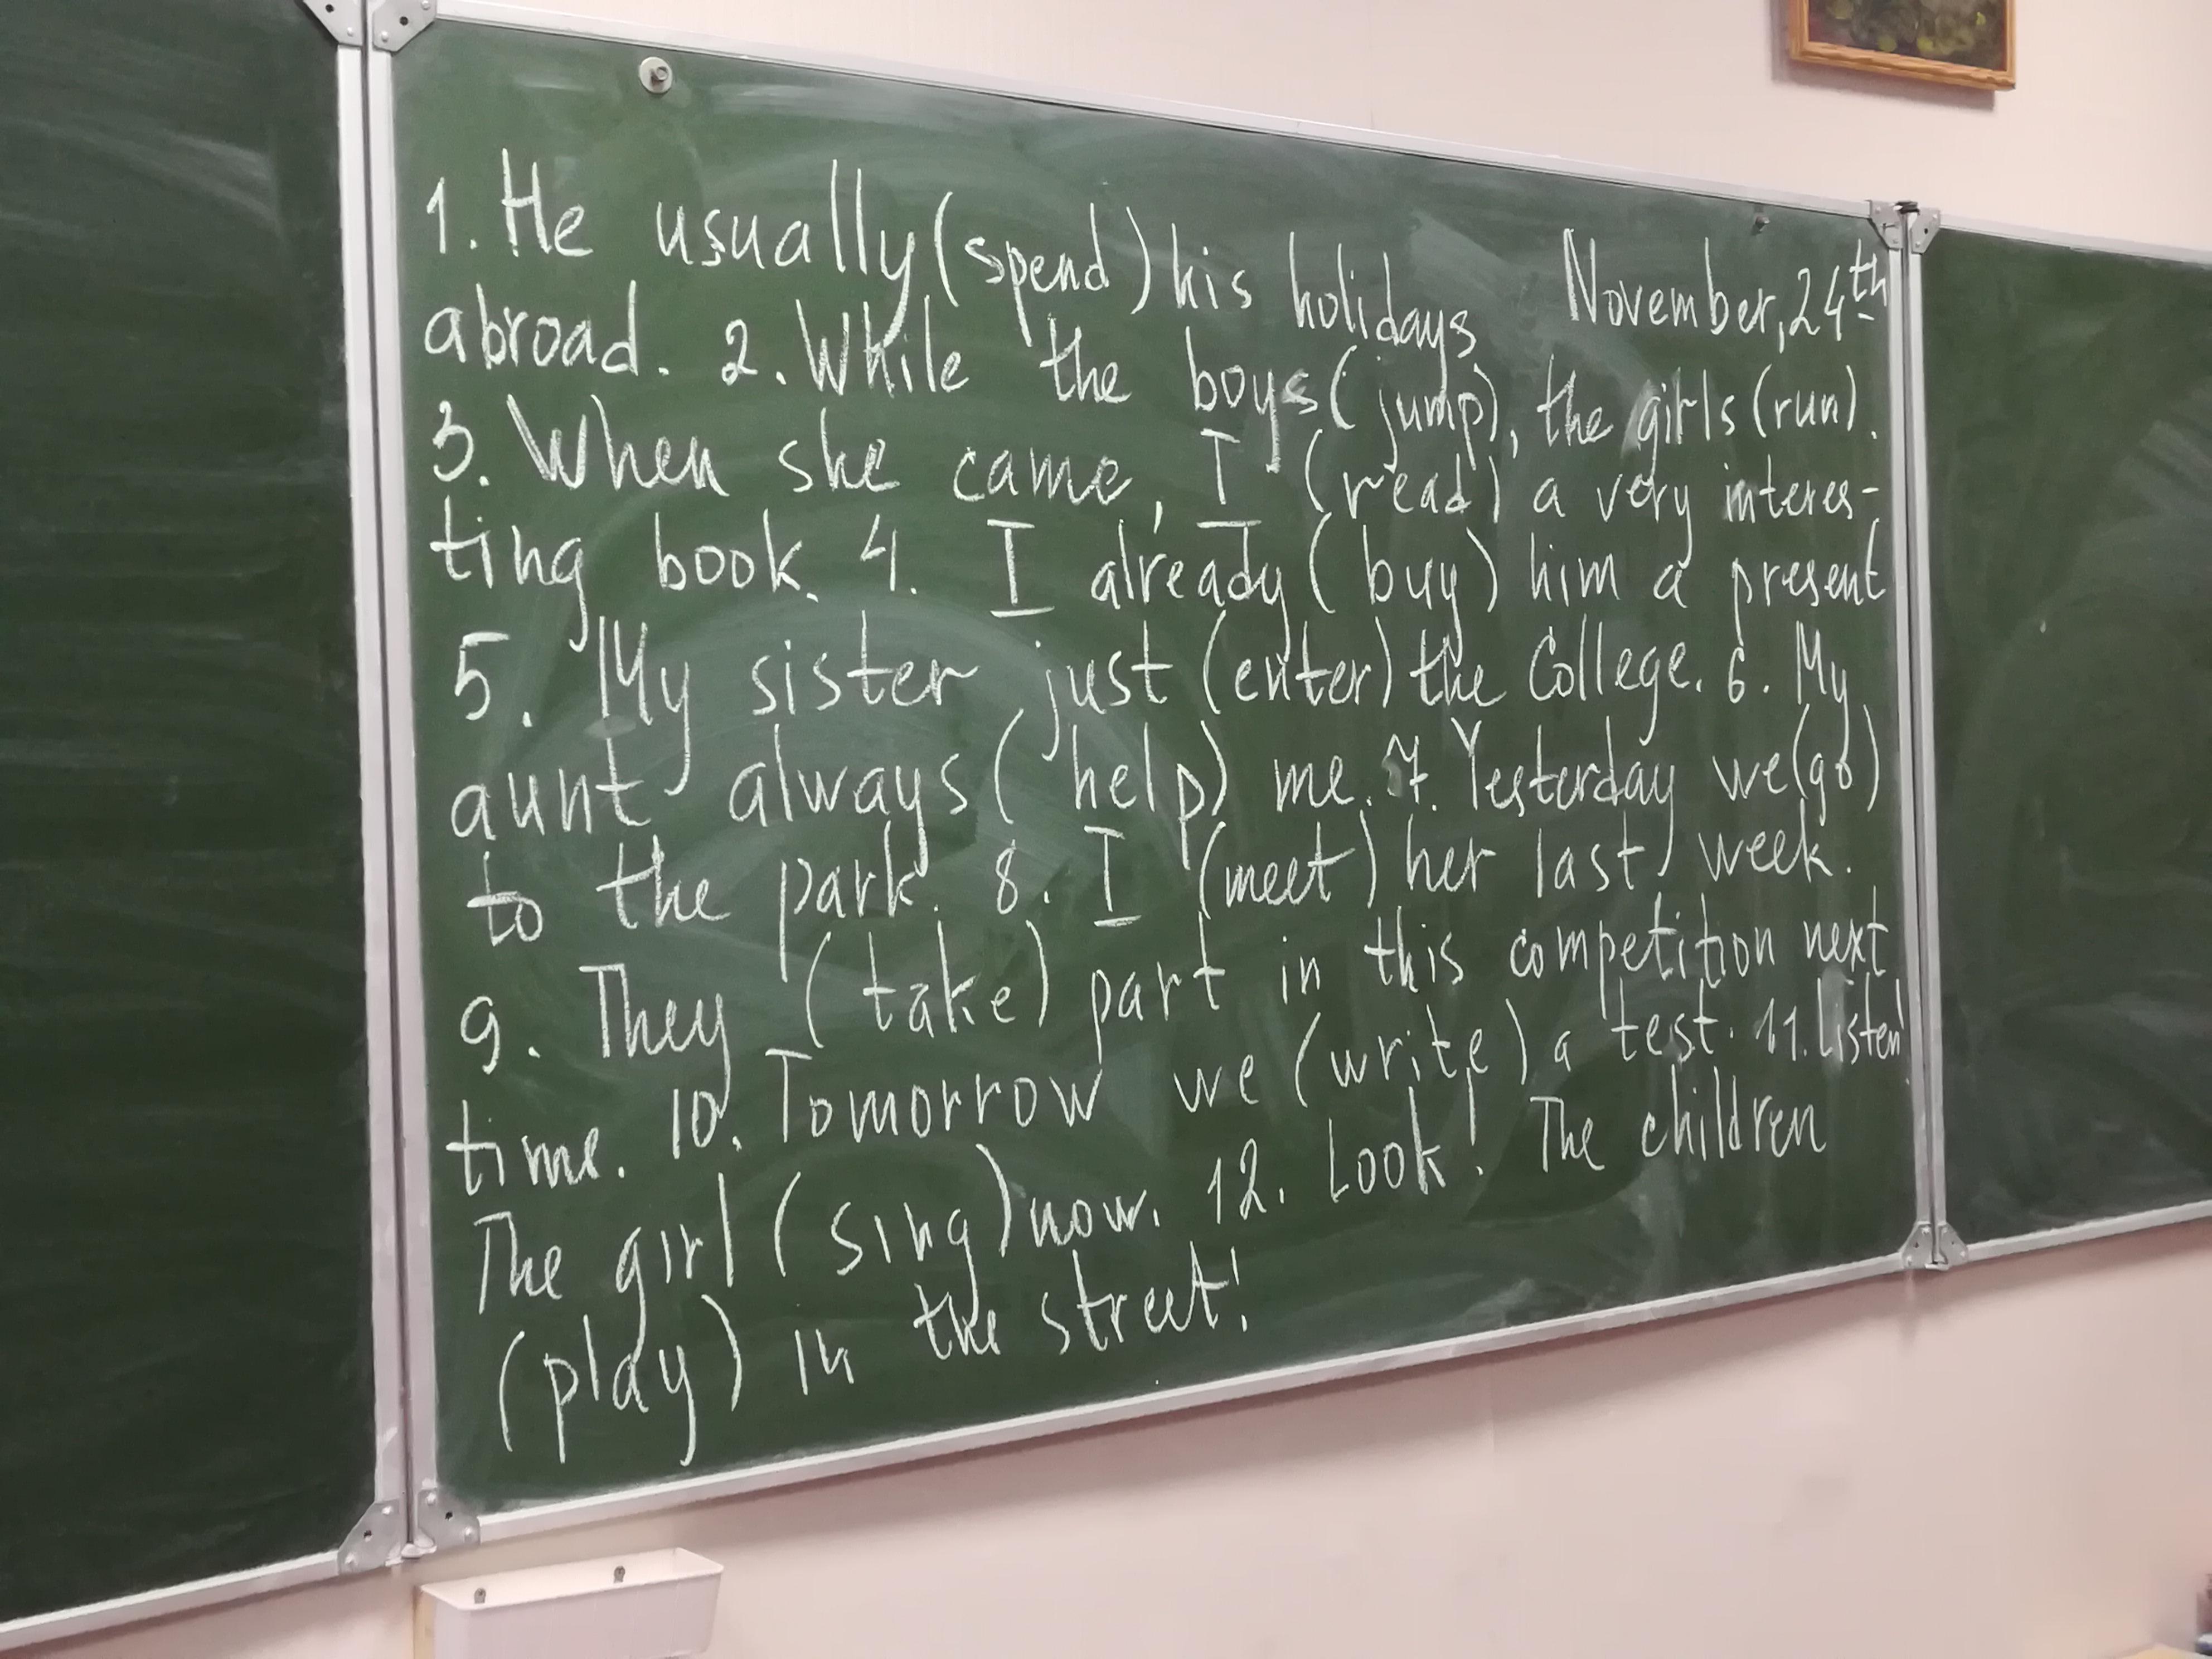 November, 24th
1. He usually (spend) his holidays
abroad. 2. While the boys (jump), the girls (run).
3. When she came, I (read) a very interes-
ting book. 4. I already (buy) him a present
5. My sister just (enter) the College. 6. My
aunt always (help) me. 7. Yesterday we (go)
to the park. 8. I (meet) her last week.
9. They (take) part in this competition next
time. 10. Tomorrow we (write) a test. 11. Listen!
The girl (sing) now. 12. Look! The children
(play) in the street!